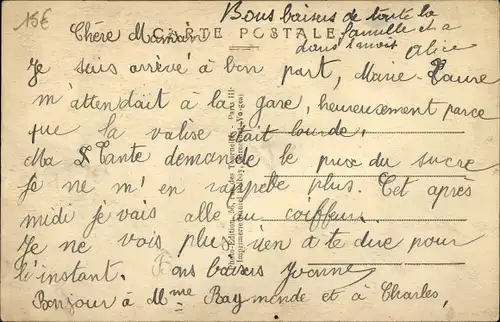 15€
Bons baisers de toute la
famille et a
dans 1 mois
Alice
CARTE POSTALE
Chère Maman
Je suis arrivé à bon part, Marie-Laure
m'attendait à la gare, heureusement parce
que la valise était lourde,
Ma Tante demande le prix du sucre
je ne m'en rappelle plus. Cet après
midi je vais alle au coiffeur.
Je ne vois plus rien à te dire pour
l'instant. Bons baisers Yvonne
Bonjour à Mme Raymonde et à Charles,